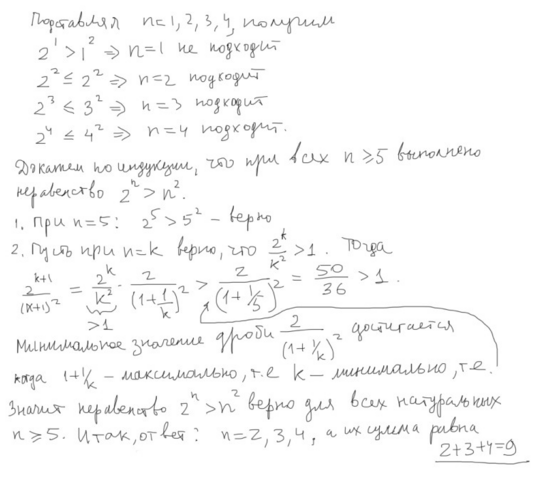 Подставляя n=1, 2, 3, 4, получим
2¹ > 1² ⇒ n=1 не подходит
2² ≤ 2² ⇒ n=2 подходит
2³ ≤ 3² ⇒ n=3 подходит
2⁴ ≤ 4² ⇒ n=4 подходит.
Докажем по индукции, что при всех n ≥ 5 выполнено
неравенство 2ⁿ > n².
1. При n=5: 2⁵ > 5² – верно
2. Пусть при n=k верно, что 2ᵏ/k² > 1. Тогда
2ᵏ⁺¹/(k+1)² = 2ᵏ/k² · 2/(1+1/k)² > 2/(1+1/5)² = 50/36 > 1.
>1
Минимальное значение дроби 2/(1+1/k)² достигается
когда 1+1/k – максимально, т.е. k – минимально, т.е.
Значит неравенство 2ⁿ > n² верно для всех натуральных
n ≥ 5. Итак, ответ: n=2, 3, 4, а их сумма равна
2+3+4=9